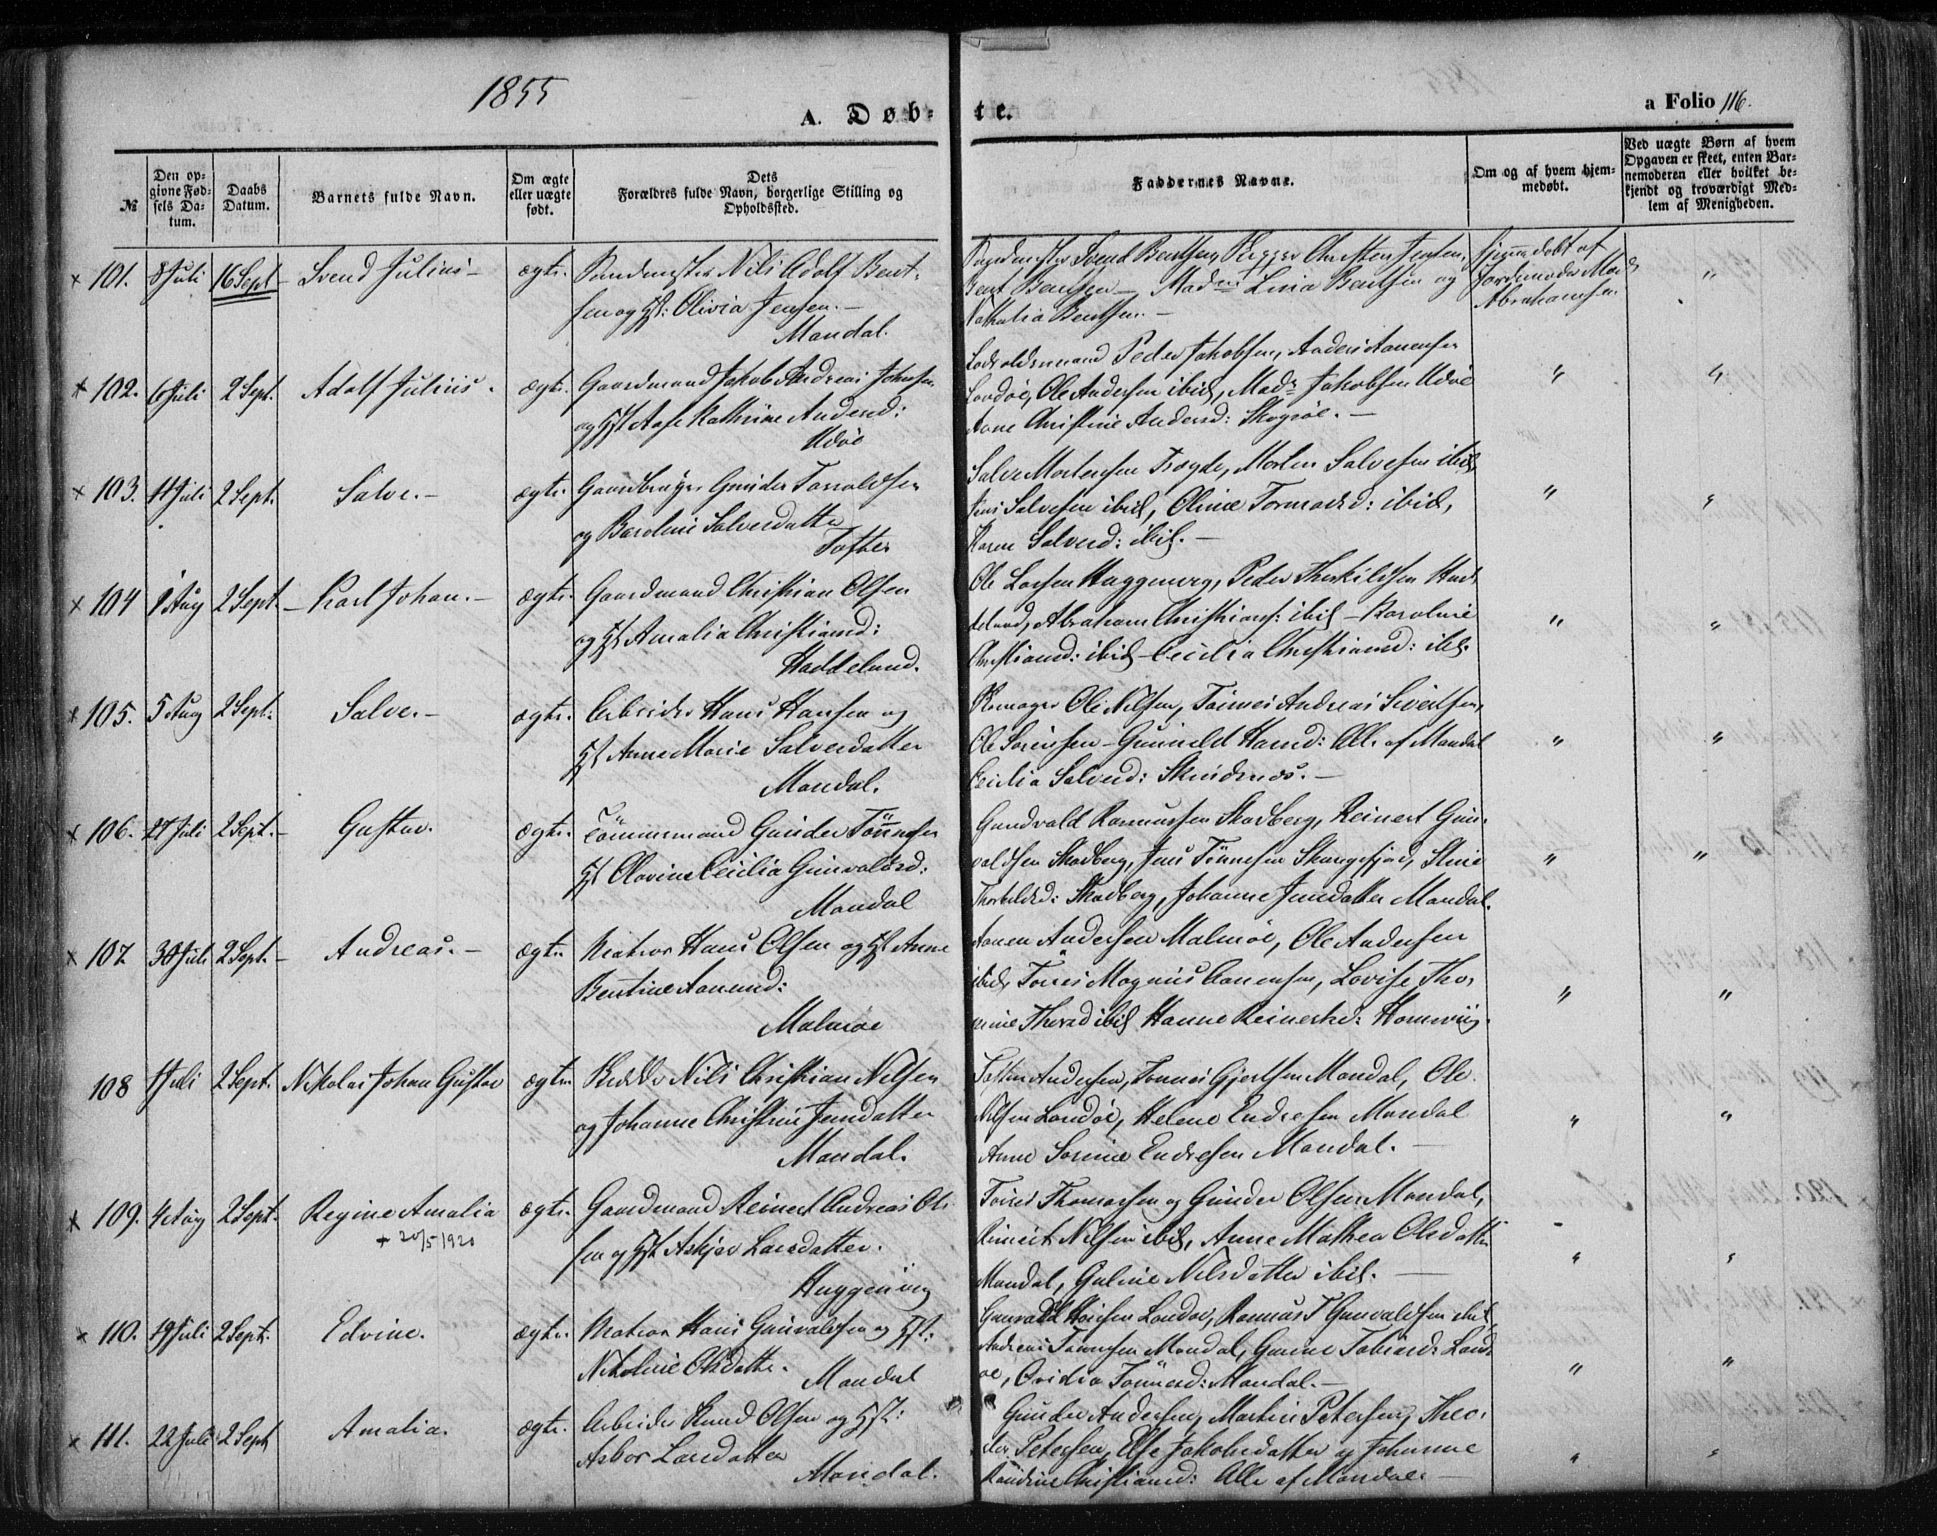 1855
A. Døb-
te.
a Folio 116.
№
Den op-
givne Fød-
sels Da-
tum.
Daabs
Datum.
Barnets fulde Navn.
Om ægte
eller uægte
født.
Dets
Forældres fulde Navn, borgerlige Stilling og
Opholdssted.
Faddernes Navne.
Om og af hvem hjem-
medøbt.
Ved uægte Børn af hvem
Opgaven er skeet, enten Bar-
nemoderen eller hvilket be-
kjendt og troværdigt Med-
lem af Menigheden.
× 101. 8 Juli 16 Sept Svend Julius – ægte. Nils Adolf Bent-
sen og Hst: Olivia Jensen. –
Mandal.
Svend Bentsen, Christen Jensen,
Bent Bentsen – Mad Lina Bentsen og
Nathalia Bentsen. –
hjemmedøbt af
Jordemoder Mad
Abrahamsen
"
× 102. 6 Juli 2 Sept. Adolf Julius. ægte. Gaardmand Jakob Andreas Johnsen
og Hst Aase Kathrine Andersd:
Udøe
Lodsoldermand Peder Jakobsen, Anders Aanensen
Landøe, Ole Andersen ibid, Mad Jakobsen Udøe
Anne Christine Andersd: Skogsøe. –
" "
× 103. 11 Juli 2 Sept. Salve. – ægte. Gaardbruger Gunder Torvaldsen
og Bardine Salvesdatter
Tofte
Salve Mortensen Tregde, Morten Salvesen ibid,
Jens Salvesen ibid, Oline Tormodsd: ibid,
Karen Salvesd: ibid. –
" "
× 104 9 Aug 2 Sept. – Karl Johan. – ægte. Gaardmand Christian Olsen
og Hst Amalia Christiansd:
Haddeland.
Ole Larsen Huggenvig, Peder Therkildsen Had-
deland, Abraham Christians: ibid – Karoline
Christiansd: ibid – Cecilia Christiansd: ibid.
" "
× 105. 5 Aug 2 Sept. Salve. – ægte. Arbeider Hans Hansen og
Hst Anne Marie Salvesdatter
Mandal.
Ole Nilsen, Tønnes Andreas Sivertsen,
Ole Sørensen – Gunvald Hansd: Alle af Mandal
Cecilia Salvesd: Skinsnes. –
" "
× 106. 27 Juli 2 Sept. – Gustav. ægte. Tømmermand Gunder Tönnesen
Hst Olavine Cecilia Gunvaldsd:
Mandal
Gundvald Rasmussen Skadberg, Reinert Gun-
valdsen Skadberg, Jens Tönnesen Skarngsfjord, Stine
Skadberg, Johanne Jensdatter Mandal.
" "
× 107 30 Juli 2 Sept. – Andreas. – ægte. Matros Hans Olsen og Hst Anne
Bentine Aanensd:
Malmøe
Aanen Andersen Malmøe, Ole Andersen
ibid, Tørres Magnus Aanensen, Lovise Tho-
mine ibid Hanne Reinertsd: Homsviig.
" "
108 1 Juli 2 Sept. Nikolai Johan Gustav ægte Nils Christian Nilsen
og Johanne Christine Jensdatter
Mandal.
Andersen, Tönnes Gjertsen Mandal, Ole
Nilsen Landøe, Helene Endresen Mandal
Anne Sorine Endresen Mandal. –
" "
× 109. 4 Aug 2 Sept. Regine Amalia ægte. Gaardmand Reinert Andreas Ol-
+ 20/5 1920
sen og Hst Askjer Larsdatter.
Huggenvig
Tørres Thomassen og Gunder Olsen Mandal,
Reinert Nilsen ibid, Anne Mathea Olsdatter
Mandal, Guline Nilsdatter ibid. –
" "
× 110. 19 Juli 2 Sept. Edvine. ægte. Matros Hans Gunvaldsen og Hst:
Nikoline Olsdatter. Mandal
Gunvald Hansen Landøe, Rasmus T Gunvaldsen ibid,
Andreas Tönnesen Mandal, Gunne Tobiasd: Land-
øe, Ovidia Tönnesd: Mandal. –
" "
× 111. 22 Juli 2 Sept Amalia. ægte. Arbeider Knud Olsen og Hst:
Asbor Larsdatter
Mandal.
Gunder Andersen, Martin Petersen, Theo-
dor Petersen, Else Jakobsdatter og Johanne
Christiansd: Alle af Mandal.
" "